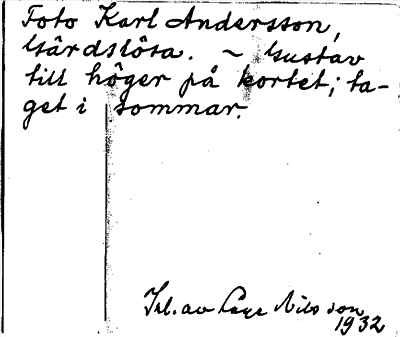 Foto Karl Andersson,
Gärdslösa. ~ Gustav
till höger på kortet; ta-
get i sommar.
Ink. av Åage Nilsson
1932